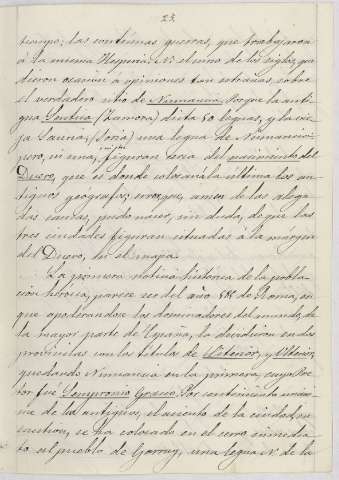 23.
tiempo; las continuas guerras, que trabajaron
á la misma Hesperia. Ni el sino de los siglos, que
dieron ocasion á opiniones tan estrañas, sobre
el verdadero sitio de Numancia. Porque la anti-
gua Sentica (Zamora) dista 50 leguas, y la vie-
ja Sauria, (Soria) una legua de Numancia;
pero, ni una, ni otra figuran cerca del nacimiento del
Duero, que es donde colocaría la última los an-
tiguos geógrafos; error que, amen de las alega-
das causas, pudo nacer, sin duda, de que las
tres ciudades figuran situadas á la márgen
del Duero, en el mapa.
La primera noticia histórica de la pobla-
cion heróica, parece ser del año de Roma, en
que apoderandose los dominadores del mundo, de
la mayor parte de España, la dividieron en dos
provincias con los titulos de Citerior, y Ulterior,
quedando Numancia en la primera, cuyo Pre-
tor fué Sempronio Graco. Por sentimiento unáni-
me de la antigüa, el asiento de la ciudad, en
cuestion, se ha colocado en el cerro inmedia-
to al pueblo de Garray, una legua N. de la